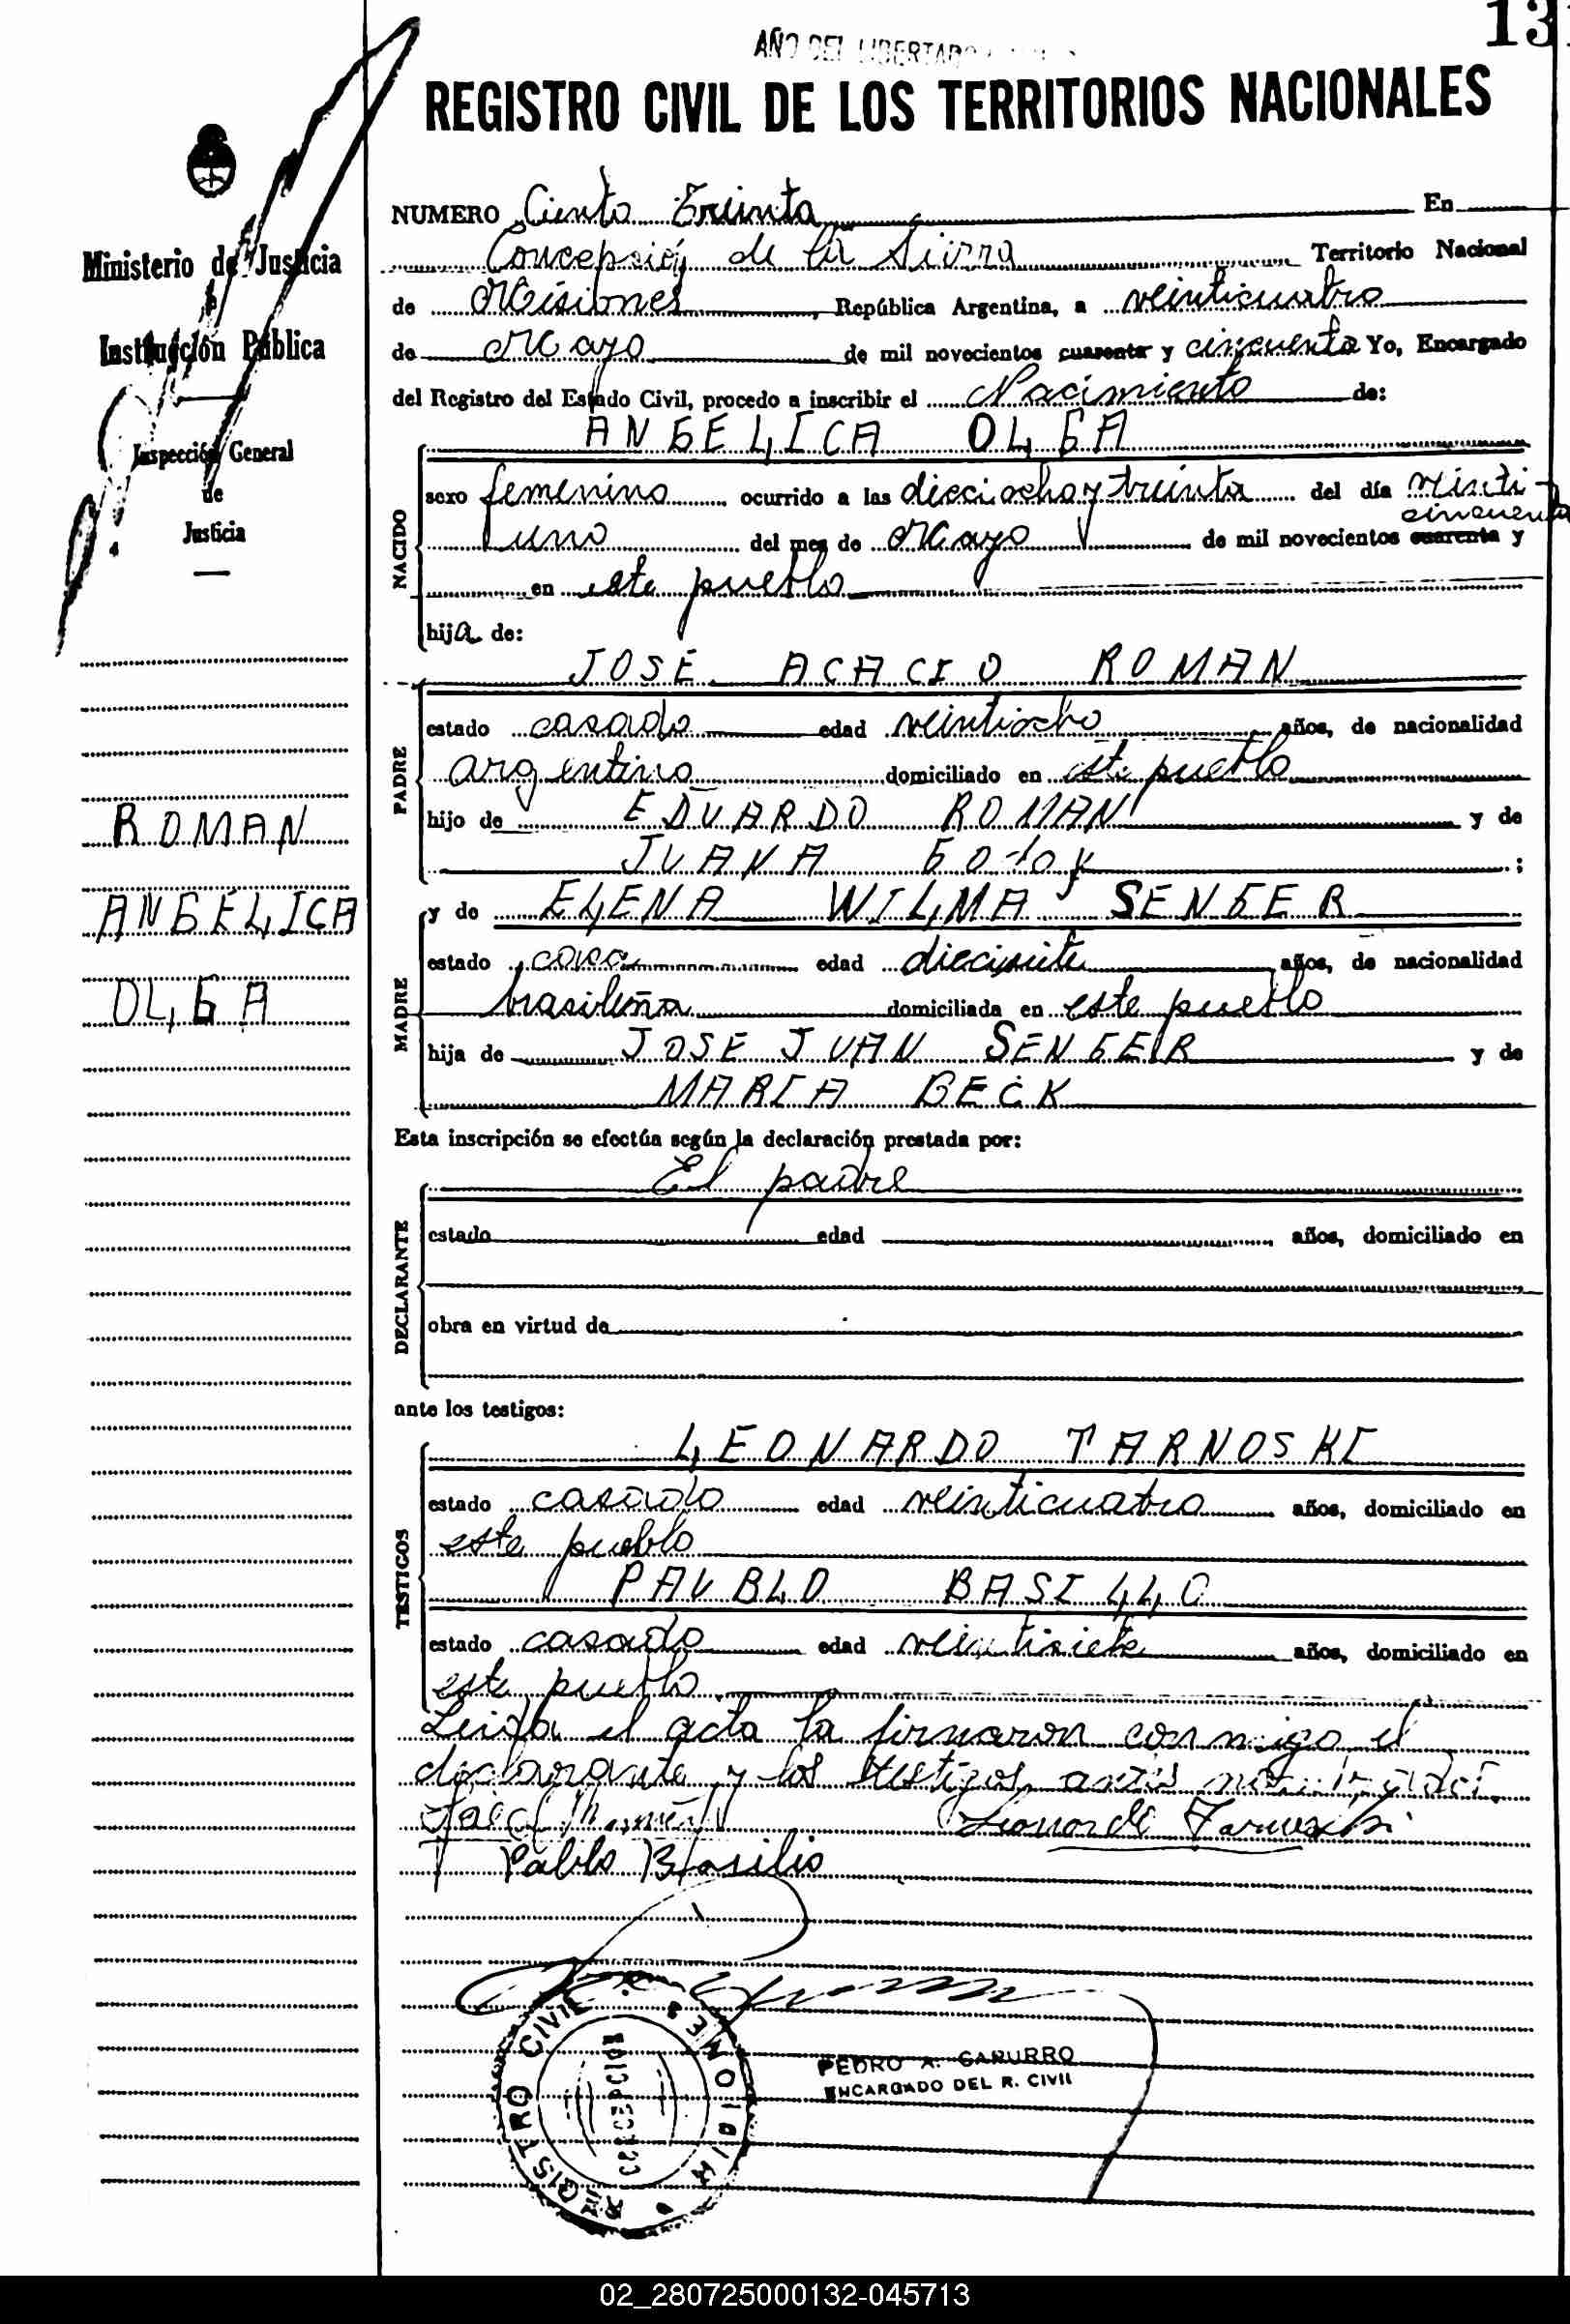 131
AÑO DEL LIBERTADOR
REGISTRO CIVIL DE LOS TERRITORIOS NACIONALES
Ministerio de Justicia
e
Instrucción Pública
Inspección General
de
Justicia
ROMAN
ANGELICA
OLGA
NUMERO Ciento Treinta En
Concepción de la Sierra Territorio Nacional
de Misiones, República Argentina, a veinticuatro
de Mayo de mil novecientos cuarenta y cincuenta Yo, Encargado
del Registro del Estado Civil, procedo a inscribir el Nacimiento de:
NACIDO
ANGELICA OLGA
sexo femenino ocurrido a las dieciocho y treinta del día veinti-
cincuenta
uno del mes de Mayo de mil novecientos cuarenta y
en este pueblo
hija de:
PADRE
JOSÉ ACACIO ROMAN
estado casado edad veintiocho años, de nacionalidad
argentino domiciliado en este pueblo
hijo de EDUARDO ROMAN y de
JUANA Godoy ;
MADRE
y de ELENA WILMA SENGER
estado casa edad diecisiete años, de nacionalidad
brasileña domiciliada en este pueblo
hija de JOSE JUAN SENGER y de
MARIA BECK
Esta inscripción se efectúa según la declaración prestada por:
DECLARANTE
El padre
estado edad años, domiciliado en
obra en virtud de
ante los testigos:
TESTIGOS
LEONARDO TARNOSKI
estado casado edad veinticuatro años, domiciliado en
este pueblo
PAUBLO BASILLO
estado casado edad veintisiete años, domiciliado en
este pueblo
Leida el acta la firmaron conmigo el
declarante y los testigos antes
Leonardo Tarnoski
Pablo Basilio
REGISTRO CIVIL
CONCEPCION
MISIONES
PEDRO A. CAPURRO
ENCARGADO DEL R. CIVIL
02_280725000132-045713